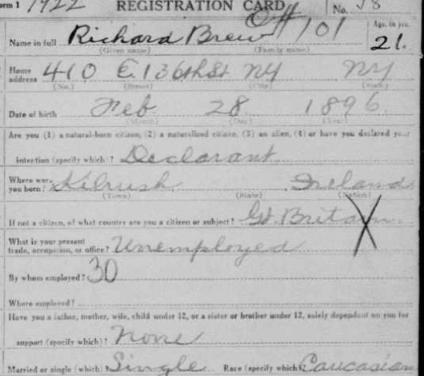 Form 1 1922 REGISTRATION CARD No. 58
Off 101 Age, in yrs.
Name in full Richard Brew 21.
(Given name) (Family name)
Home address 410 E. 136th St NY NY
(No.) (Street) (City) (State)
Date of birth Feb 28 1896
(Month) (Day) (Year)
Are you (1) a natural-born citizen, (2) a naturalized citizen, (3) an alien, (4) or have you declared your
intention (specify which)? Declarant
Where were you born? Kilrush Ireland
(Town) (State) (Nation)
If not a citizen, of what country are you a citizen or subject? Gt. Britain X
What is your present trade, occupation, or office? Unemployed
By whom employed? 30
Where employed?
Have you a father, mother, wife, child under 12, or a sister or brother under 12, solely dependent on you for
support (specify which)? None
Married or single (which)? Single Race (specify which)? Caucasian